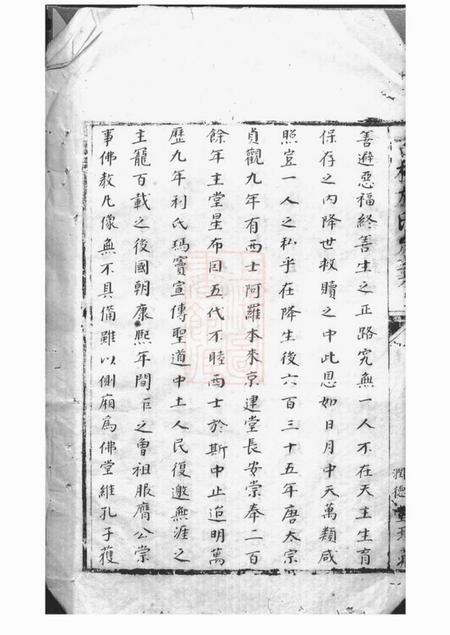 善避惡福終善生之正路究無一人不在天主生育
保存之內降世救贖之中此恩如日月中天萬類咸
照豈一人之私乎在降生後六百三十五年唐太宗
貞觀九年有西士阿羅本來京建堂長安崇奉二百
餘年主堂星布因五代不睦西士於斯中止迨明萬
歷九年利氏瑪竇宣傳聖道中土人民復邀無涯之
主寵百載之後國朝康熙年間叵之曾祖服膺公棠
事佛教凡像無不具備雖以側廂為佛堂維孔子獲
潤德堂